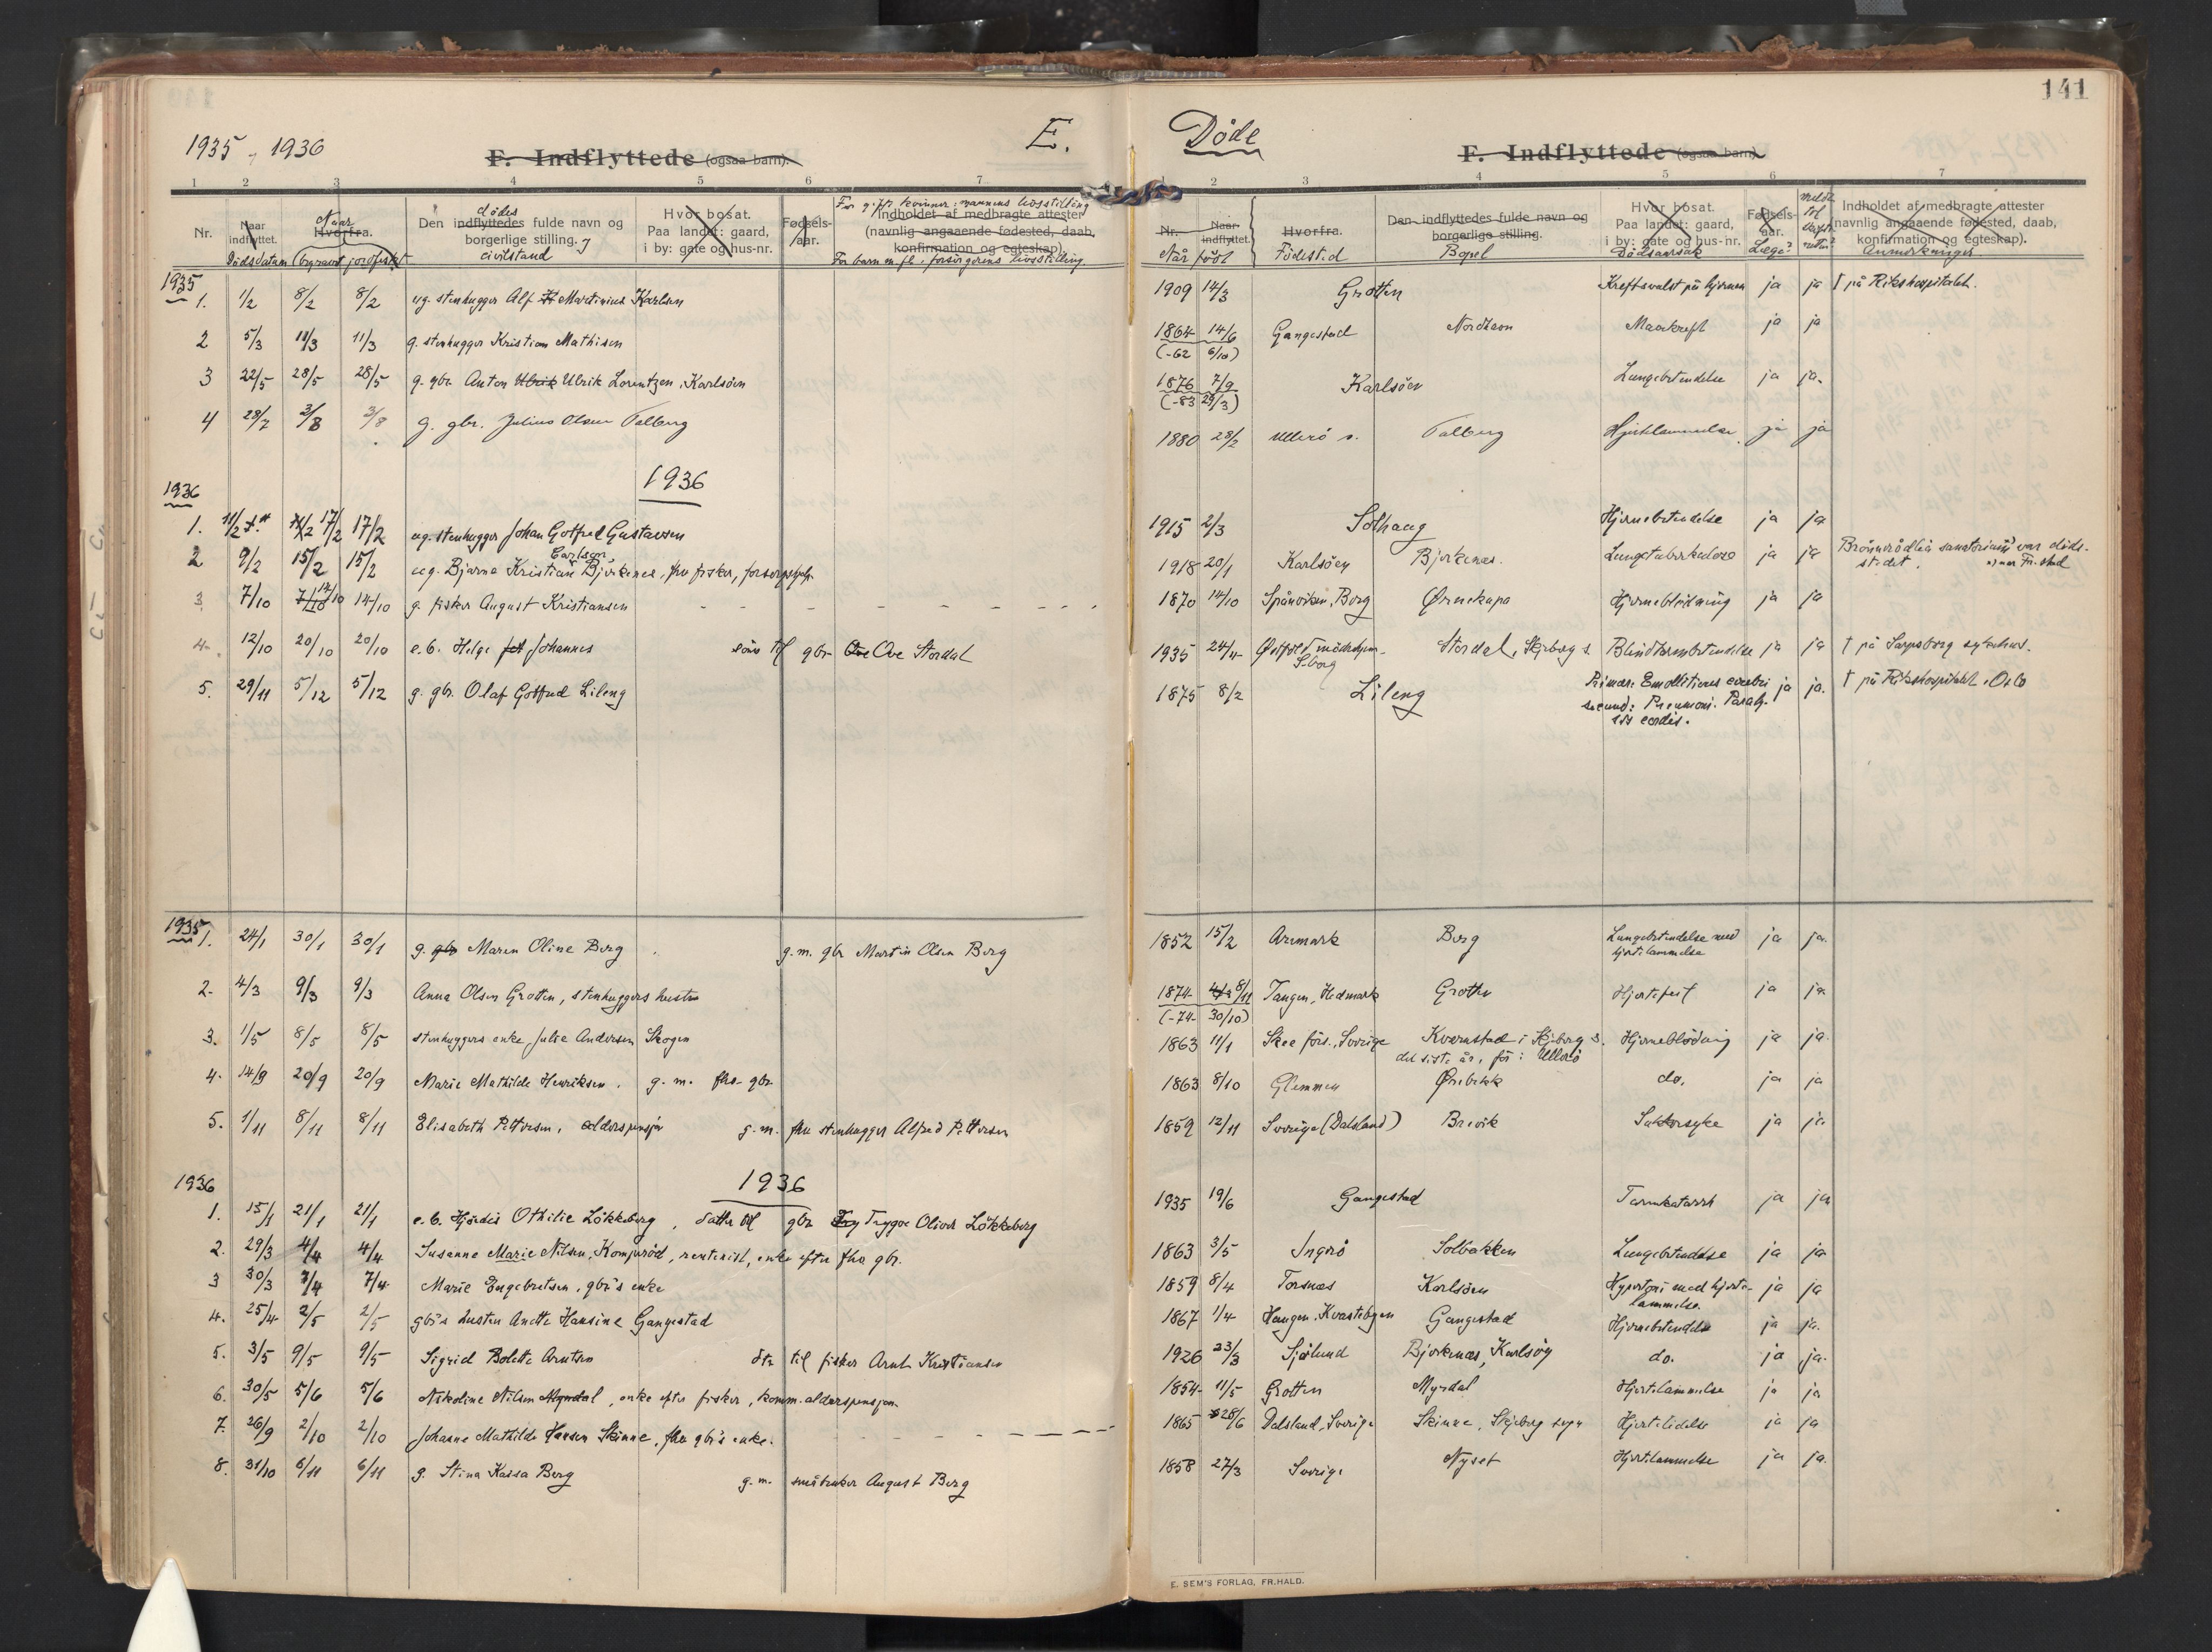 141
1935 - 1936
E.
Døde
F. Indflyttede (ogsaa barn).
F. Indflyttede (ogsaa barn).
1 2 3 4 5 6 7
1 2 3 4 5 6 7
Nr.
Naar indflyttet.
Dødsdatum
Naar
Hvorfra.
(begravet jordfestet
dødes
Den indflyttedes fulde navn og
borgerlige stilling.
civilstand
Hvor bosat.
Paa landet: gaard,
i by: gate og hus-nr.
Fødsels-
aar.
For g. kvinner: mannens livsstilling
Indholdet af medbragte attester
(navnlig angaaende fødested, daab,
konfirmation og egteskap).
For barn m. fl.: forsørgerens livsstilling
Nr.
Naar indflyttet.
Når født
Hvorfra.
Fødested
Den indflyttedes fulde navn og
borgerlige stilling.
Bopel
Hvor bosat.
Paa landet: gaard,
i by: gate og hus-nr.
Dødsaarsak
Fødsels-
aar.
Læge?
Meldt til
Indholdet af medbragte attester
(navnlig angaaende fødested, daab,
konfirmation og egteskap).
Anmerkninger
1935
1. 1/2 8/2 8/2 ug. stenhugger Alf Martinius Karlsen 1909 14/3 Grotten Kreftsvulst på hjernen ja ja † på Rikshospitalet.
2 5/3 11/3 11/3 g. stenhugger Kristian Mathisen 1864 14/6 Gangestad Nordhavn Mavekreft ja ja
(-62 6/10)
3 22/5 28/5 28/5 g. gbr. Anton Ulrik Ulrik Lorentzen, Karlsöen 1876 7/9 Karlsöen Lungebetendelse ja ja.
(-83 29/3)
4 28/7 3/8 3/8 g. gbr. Julius Olsen Talberg 1880 28/2 Ullerö s. Talberg Hjertelammelse ja ja
1936
1936
1. 11/2 17/2 17/2 ug. stenhugger Johan Gotfred Gustavsen 1915 2/3 Solhaug Hjernebetendelse ja ja
2 9/2 15/2 15/2 ug. Bjarne Kristian Carlsen Björkenes, fhv fisker, forsorgshjelp 1918 20/1 Karlsöen Bjerkenes. Lungetuberkulose ja ja Brönnerödlia sanatorium var döds-
stedet. nær Fr.stad
3. 7/10 7/10 14/10 14/10 g. fisker August Kristiansen 1870 14/10 Spånviken, Borg Ørnekupa Hjerneblödning ja ja
4. 12/10 20/10 20/10 e.b. Helge Johannes sönn til gbr. Ove Ove Stordal 1935 24/4 Østfold mödrehjem Stordal, Skjeberg s. Blindtarmbetendelse ja ja † på Sarpsborg sykehus.
S.borg
5. 29/11 5/12 5/12 g. gbr. Olaf Gotfred Lileng 1875 8/2 Lileng Primær: Emollitiones cerebri ja ja. † på Rikshospitalet, Oslo
secund: Pneumoni. Paraly-
sis cordis.
1935
1. 24/1 30/1 30/1 g. gbr Maren Oline Berg g.m. gbr Martin Olsen Berg 1852 15/2 Aremark Berg Lungebetendelse med ja ja.
hjertelammelse
2. 4/3 9/3 9/3 Anna Olsen Grotten, stenhuggers hustru 1874 8/11 Tangen, Hedmark Grotten Hjertefeil ja ja
(-74- 30/10)
3. 1/5 8/5 8/5 stenhuggers enke Julie Andersen Skogen 1863 11/1 Skee förs., Sverige Kvernstad i Skjeberg s. Hjerneblödning ja ja.
det siste år, för: Ullerö
4. 14/9 20/9 20/9 Marie Mathilde Henriksen. g. m. fhv. gbr. 1863 8/10 Glemmen Ørebekk do. ja ja
5. 1/11 8/11 8/11 Elisabeth Pettersen, alderspensjon g.m. fhv stenhugger Alfred Pettersen 1859 12/11 Sverige (Dalsland) Brevik Sukkersyke ja ja
1936
1936
1. 15/1 21/1 21/1 e.b. Hjördis Othilie Lökkeberg, datter til gbr Tryg Trygve Oliver Lökkeberg 1935 19/6 Gangestad Tarmkatarrh ja ja
2. 29/3 4/4 4/4 Susanne Marie Nilsen, Kompuröd, rentenist, enke efter fhv gbr. 1863 3/5 Ingerö Solbakken Lungebetendelse ja ja
3 30/3 7/4 7/4 Marie Engebretsen, gbr's enke 1859 8/4 Torsnæs Karlsöen Hypertoni med hjerte- ja ja
lammelse.
4. 25/4 2/5 2/5 gbr's hustru Anette Hansine Gangestad 1867 1/4 Haugen, Kvastebyen Gangestad Hjernebetendelse ja ja.
5. 3/5 9/5 9/5 Sigrid Bolette Arntsen dtr til fisker Arnt Kristiansen 1926 23/3 Sjölund Bjerkenæs, Karlsöy do. ja ja.
6. 30/5 5/6 5/6 Nikoline Nilsen Myrdal, enke efter fisker, komm. alderspensjon 1854 11/5 Grotten Myrdal Hjertelammelse ja ja
7. 26/9 2/10 2/10 Johanne Mathilde Hansen Skinne, fhv gbr's enke. 1865 28/6 Dalsland, Sverige Skinne, Skjeberg sogn Hjertelidelse ja ja
8. 31/10 6/11 6/11 g. Stina Kassa Berg g.m. småbruker August Berg 1858 27/3 Sverige Nyset Hjertelammelse ja ja.
E. SEM'S FORLAG, FR.HALD.